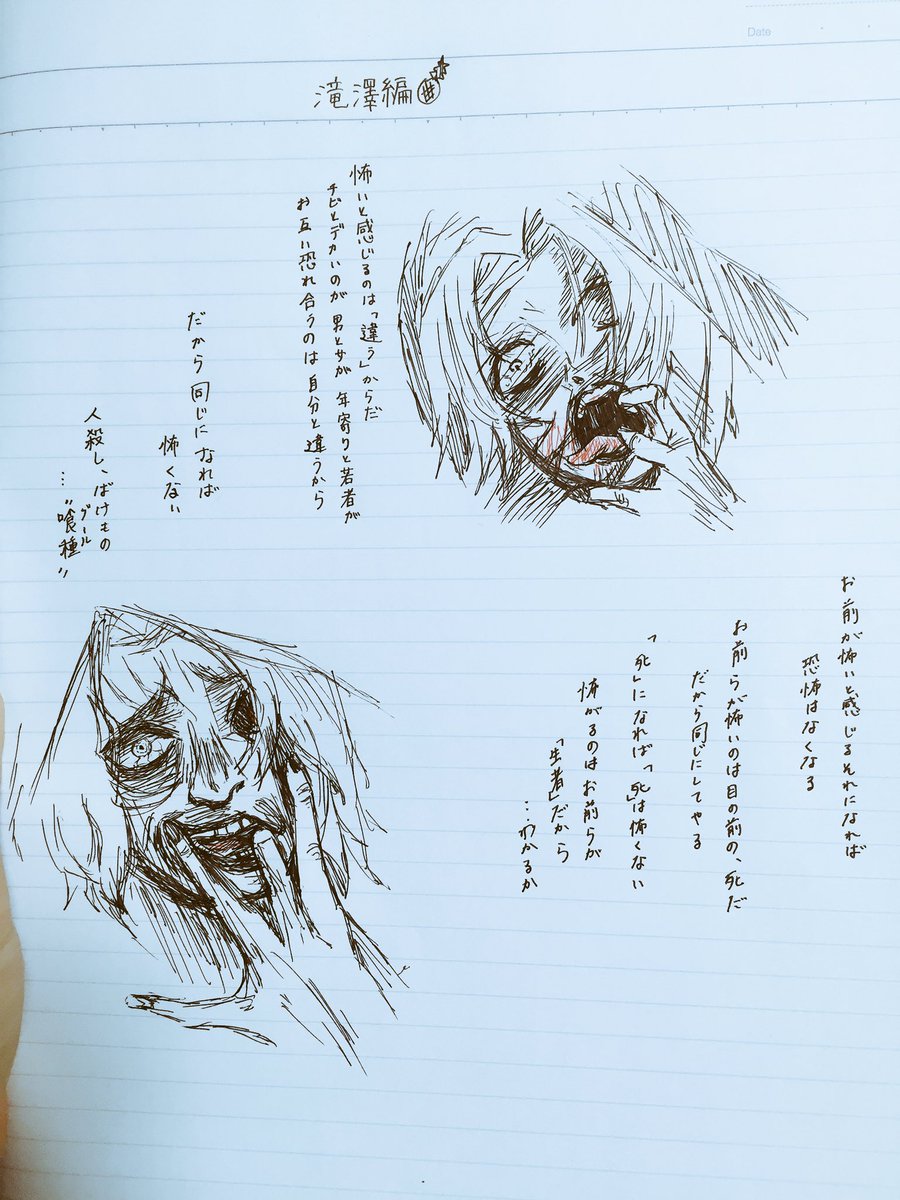 Date
滝澤編#
怖いと感じるのは「違う」からだ
チビとデカいのが 男と女が 年寄りと若者が
お互い恐れ合うのは 自分と違うから
だから 同じになれば
怖くない
人殺し、ばけもの
…"喰種"
グール
お前が怖いと感じるそれになれば
恐怖はなくなる
お前らが怖いのは目の前の、死だ
だから同じにしてやる
「死」になれば「死」は怖くない
怖がるのはお前らが
「生者」だから
…わかるか